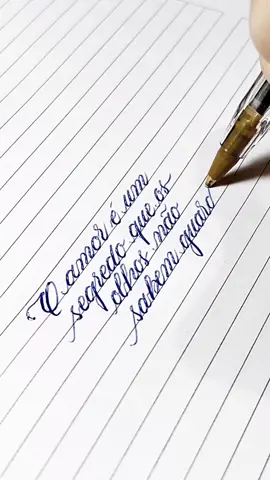 O amor é um
segredo que os
olhos não
sabem guard